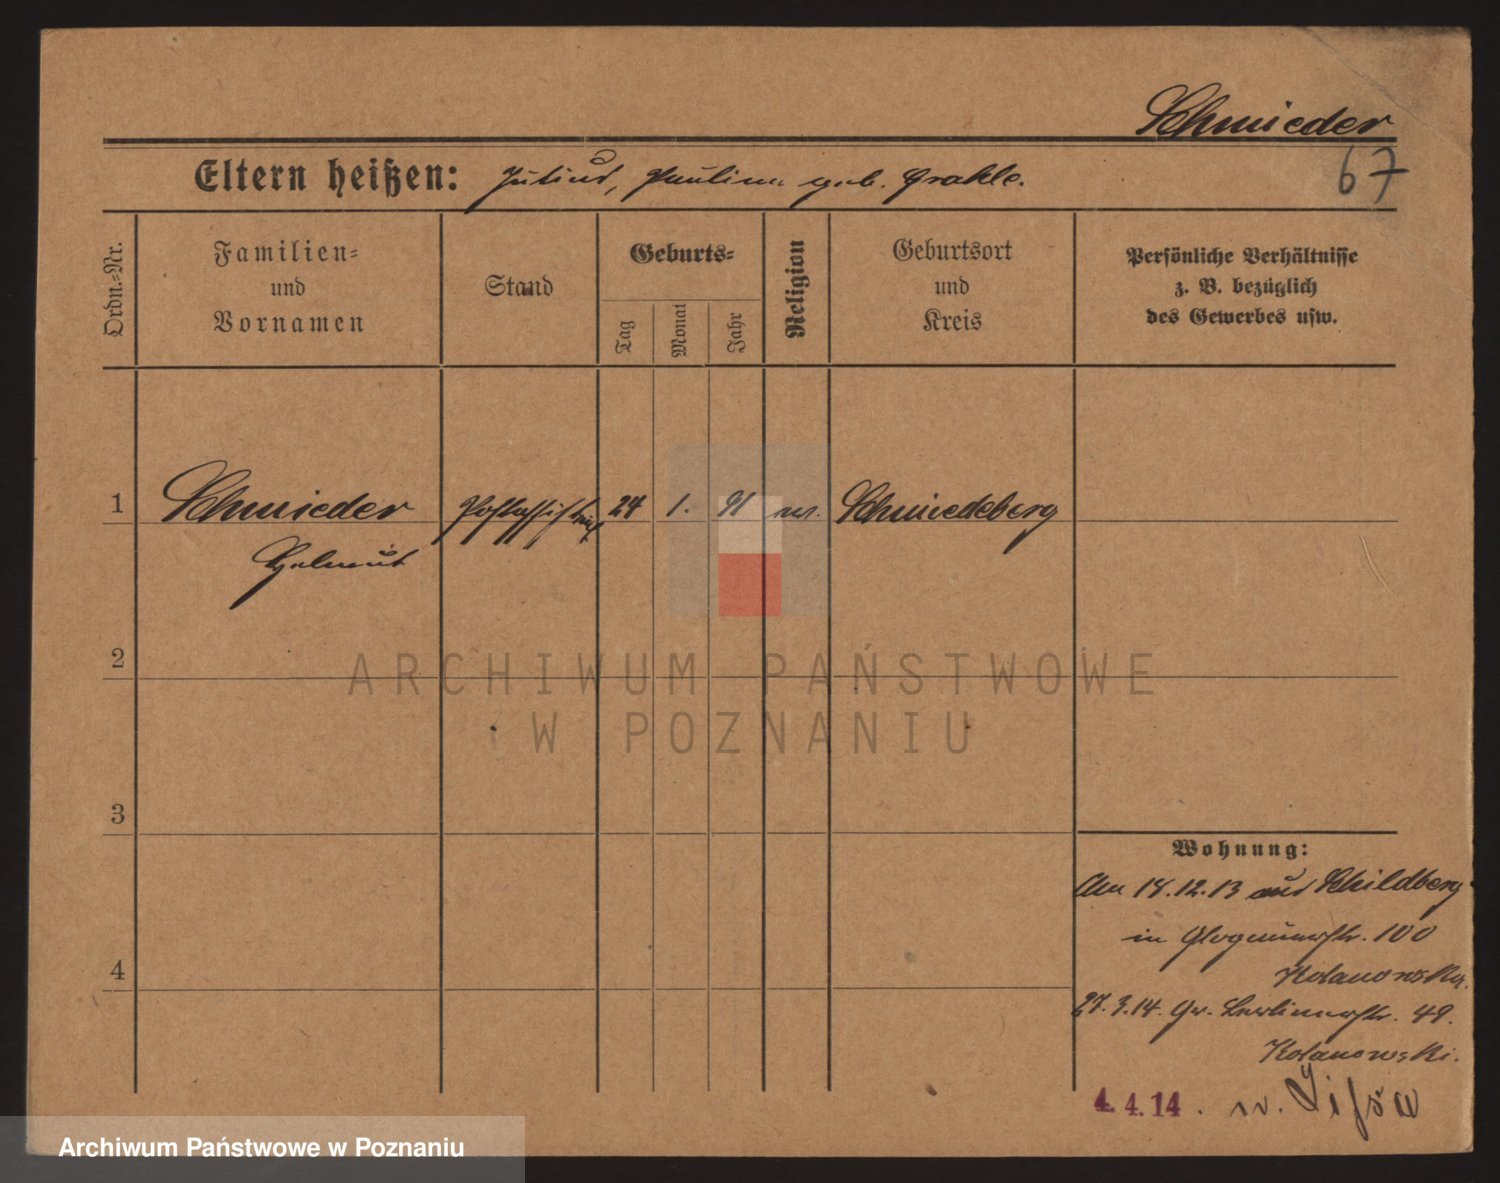 Schmieder
Eltern heißen: Julius, Pauline geb. Grahle.
67
Ordn.-Nr.
Familien-
und
Vornamen
Stand
Geburts-
Tag
Monat
Jahr
Religion
Geburtsort
und
Kreis
Persönliche Verhältnisse
z. B. bezüglich
des Gewerbes usw.
1 Schmieder Postassistent 24 1. 91 ev. Schmiedeberg
Helmut
2
ARCHIWUM PAŃSTWOWE
W POZNANIU
3
Wohnung:
Am 18.12.13 aus Schildberg
in Glogauerstr. 100
4
Kolanowska.
27.3.14. Gr. Berlinerstr. 49.
Kolanowski.
4.4.14. n. Lissa
Archiwum Państwowe w Poznaniu